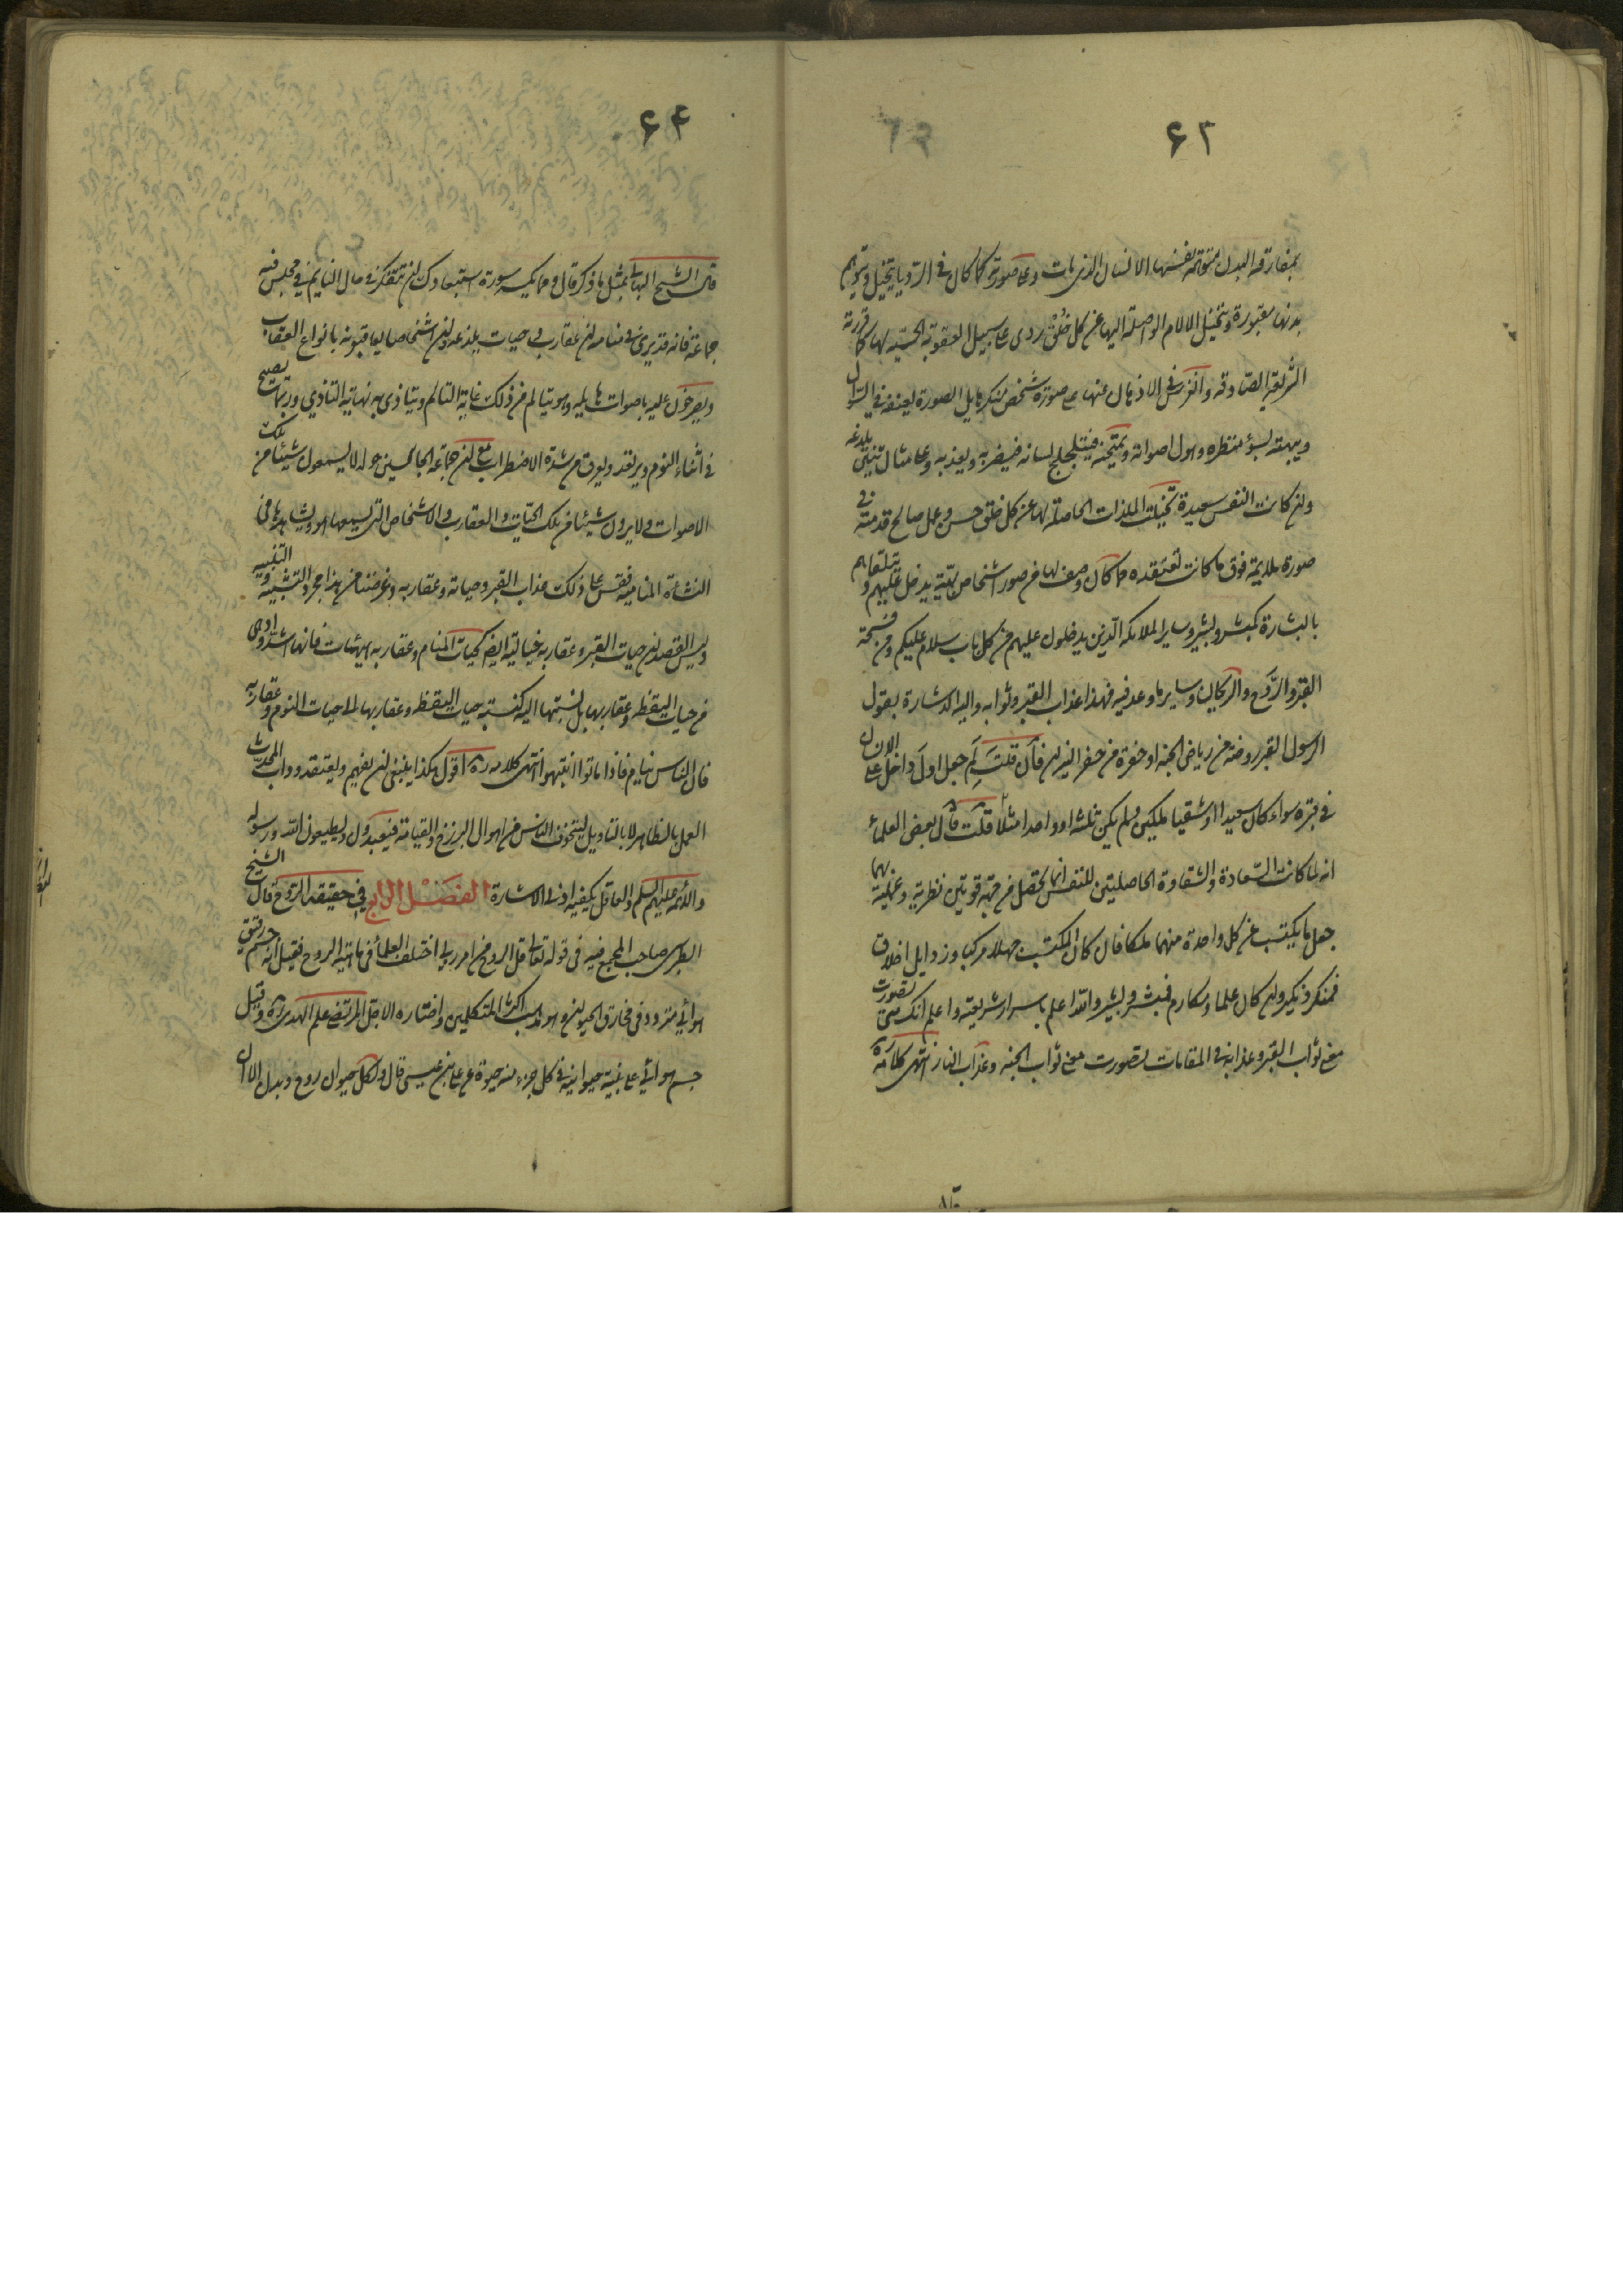 ۶۲
بمفارقه البدن متوهمة نفسها الانسان الذی مات وعلی صورته کما کان فی الرویا یتخیل ویتوهم
بدنها مقبورة ویتخیل الالام الواصلة الیها عن کل خلق ردی علی سبیل العقوبة الحسیه لها کما قررته
الشریعة الصادقه فی الاذهان عنها علی صورة شخص منکر هایل الصورة یعنفه فی السؤال
ویبهته بسؤ منظره وهول اصواته ویمتحنه فیتلجلج لسانه فیضربه ویعذبه وعلی مثال تنین یلدغه
وان کانت النفس سعیدة تخیلت الملذات الحاصلة لها عن کل خلق حسن وعمل صالح قدمته فی
صورة ملایمة فوق ما کانت تعتقده مما کان وصف لها من صور اشخاص بهیة یدخل علیهم ویتلقاهم
بالبشارة کمبشر وبشیر وسایر الملائکه الذین یدخلون علیهم من کل باب سلام علیکم ومن فسحة
القبر والروح والریحان وسایر ما وعد فیه فهذا عذاب القبر وثوابه والیه الاشارة بقول
الرسول القبر روضة من ریاض الجنة او حفرة من حفر النیران فان قلت لم جعل اول داخل علی الانسان
فی قبره سواء کان سعیدا او شقیا ملکین ولم یکن ثلثه او واحدا مثلا قلت قال بعض العلماء
انه لما کانت السعادة والشقاوة الحاصلتین للنفس انما تحصل من جهة قوتین نظریة وعملیة بهما
جعل ما یکتسب عن کل واحدة منهما ملکا فان کان المکتسب جهلا مرکبا ورذایل اخلاق
فمنکر ونکیر وان کان علما ومکارم فمبشر وبشیر والله اعلم باسرار شریعته واعلم انک متی تصورت
معنی ثواب القبر وعذابه فی المقامات تصورت معنی ثواب الجنه وعذاب النار انتهی کلامه ره
۶۴
قال الشیخ البهائی بمثل ما ذکر قال ومما یکسر سورة استبعادک ان تتفکر فی حال النایم فی مجلس فیه
جماعة فانه قد یری فی منامه ان عقارب وحیات یلدغه وان اشخاصا یعاقبونه بانواع العقاب
ویصرخون علیه باصوات هایلة وهو یتالم من ذلک غایة التالم ویتاذی به نهایة التاذی وربما یصیح
فی اثناء النوم ویرتعد ویعرق من شدة الاضطراب مع ان الجماعة الجالسین حوله لا یسمعون شیئا من تلک
الاصوات ولا یرون شیئا من تلک الحیات والعقارب والاشخاص التی یسمعها هو ویشاهدها فی
النشأة المنامیه فقس علی ذلک عذاب القبر وحیاته وعقاربه وغرضنا من هذا مجرد التشبیه والتنبیه
ولیس القصد ان حیات القبر وعقاربه خیالیة ایضا کحیات المنام وعقاربه هیهات فانها اشد وادهی
من حیات الیقظة وعقاربها بل نسبتها الیه کنسبة حیات الیقظة وعقاربها الی حیات النوم وعقاربه
فان الناس نیام فاذا ماتوا انتبهوا انتهی کلامه ره اقول هکذا ینبغی ان یفهم ویعتقد وداب المحدث
العمل بالظاهر لا بالتاویل لیتخوف الناس من اهوال البرزخ والقیامة فیعبدون ویطیعون الله ورسوله
والائمه علیهم السلم والعاقل یکفیه ادنی الاشارة الفصل الرابع فی حقیقة الروح قال الشیخ
الطبرسی صاحب المجمع فیه فی قوله تعالی قل الروح من امر ربی اختلف العلماء فی ماهیة الروح فقیل انه جسم رقیق
هوائی متردد فی مخارق الحیوان وهو مذهب اکثر المتکلمین واختاره الاجل المرتضی علم الهدی ره وقیل
جسم هوائی علی بنیة حیوانیة فی کل جزء منه حیوة عن علی بن عیسی قال ولکل حیوان روح وبدن الا ان